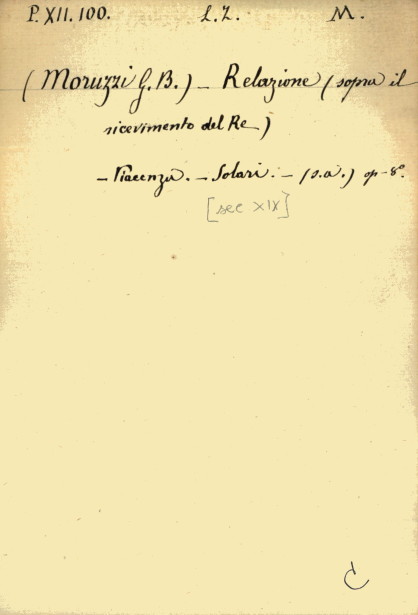 P. XII. 100. L. I. M.
(Moruzzi G. B.) — Relazione (sopra il
ricevimento del Re)
— Piacenza. — Solari. — (s.a.) op - 8°.
[sec XIX]
C